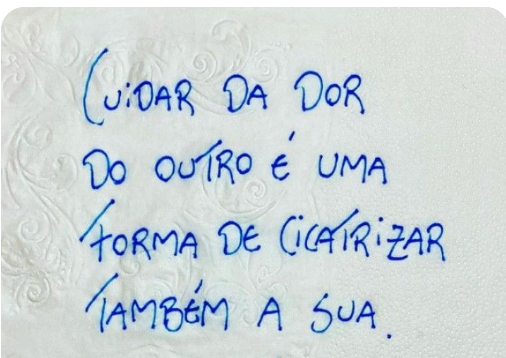 Cuidar da dor
do outro é uma
forma de cicatrizar
também a sua.